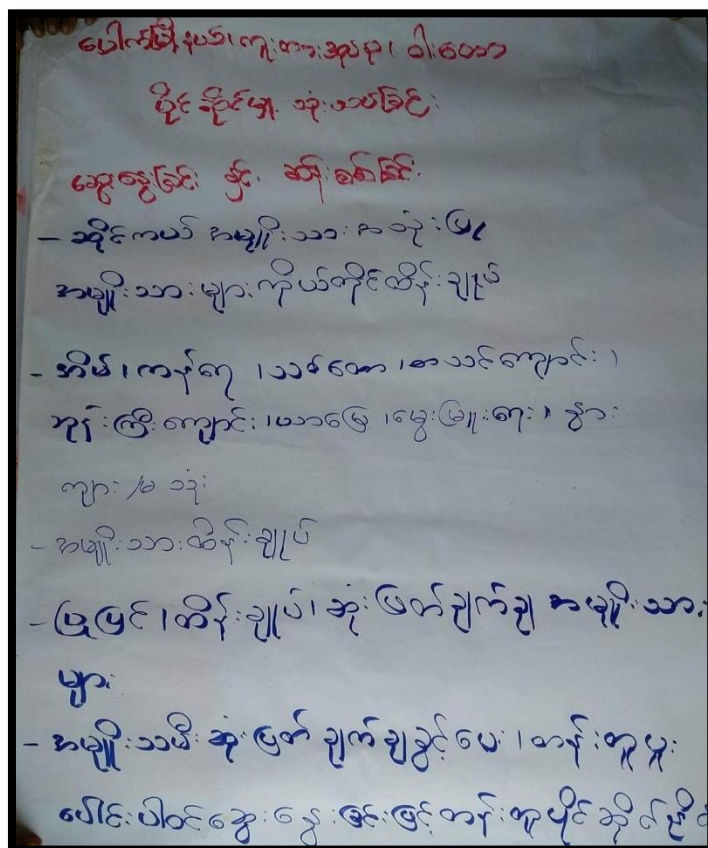 ပေါက်မြို့နယ်၊ ကူးတားအုပ်စု၊ ဝါးတော
ပိုင်ဆိုင်မှု၊ သုံးသပ်ခြင်း
ဆွေးနွေးခြင်း နှင့် ဆန်းစစ်ခြင်း
- ဆိုင်ကယ် အမျိုးသား အသုံးပြု
အမျိုးသားများ ကိုယ်တိုင်ထိန်းချုပ်
- အိမ်၊ ကန်ရေ ၊သစ်တော ၊စာသင်ကျောင်း ၊
ဘုန်းကြီးကျောင်း ၊ယာမြေ ၊မွေးမြူရေး ၊ နွား
ကျား /မ သုံး
- အမျိုးသား ထိန်းချုပ်
- ပြုပြင် ၊ ထိန်းချုပ်၊ ဆုံးဖြတ်ချက်ချ အမျိုးသား
များ
- အမျိုးသမီး ဆုံးဖြတ် ချက်ချခွင့်ပေး ၊ တန်းတူမှု
ပေါင်းပါဝင်ဆွေးနွေးခြင်းဖြင့် တန်းတူပိုင်ဆိုင်